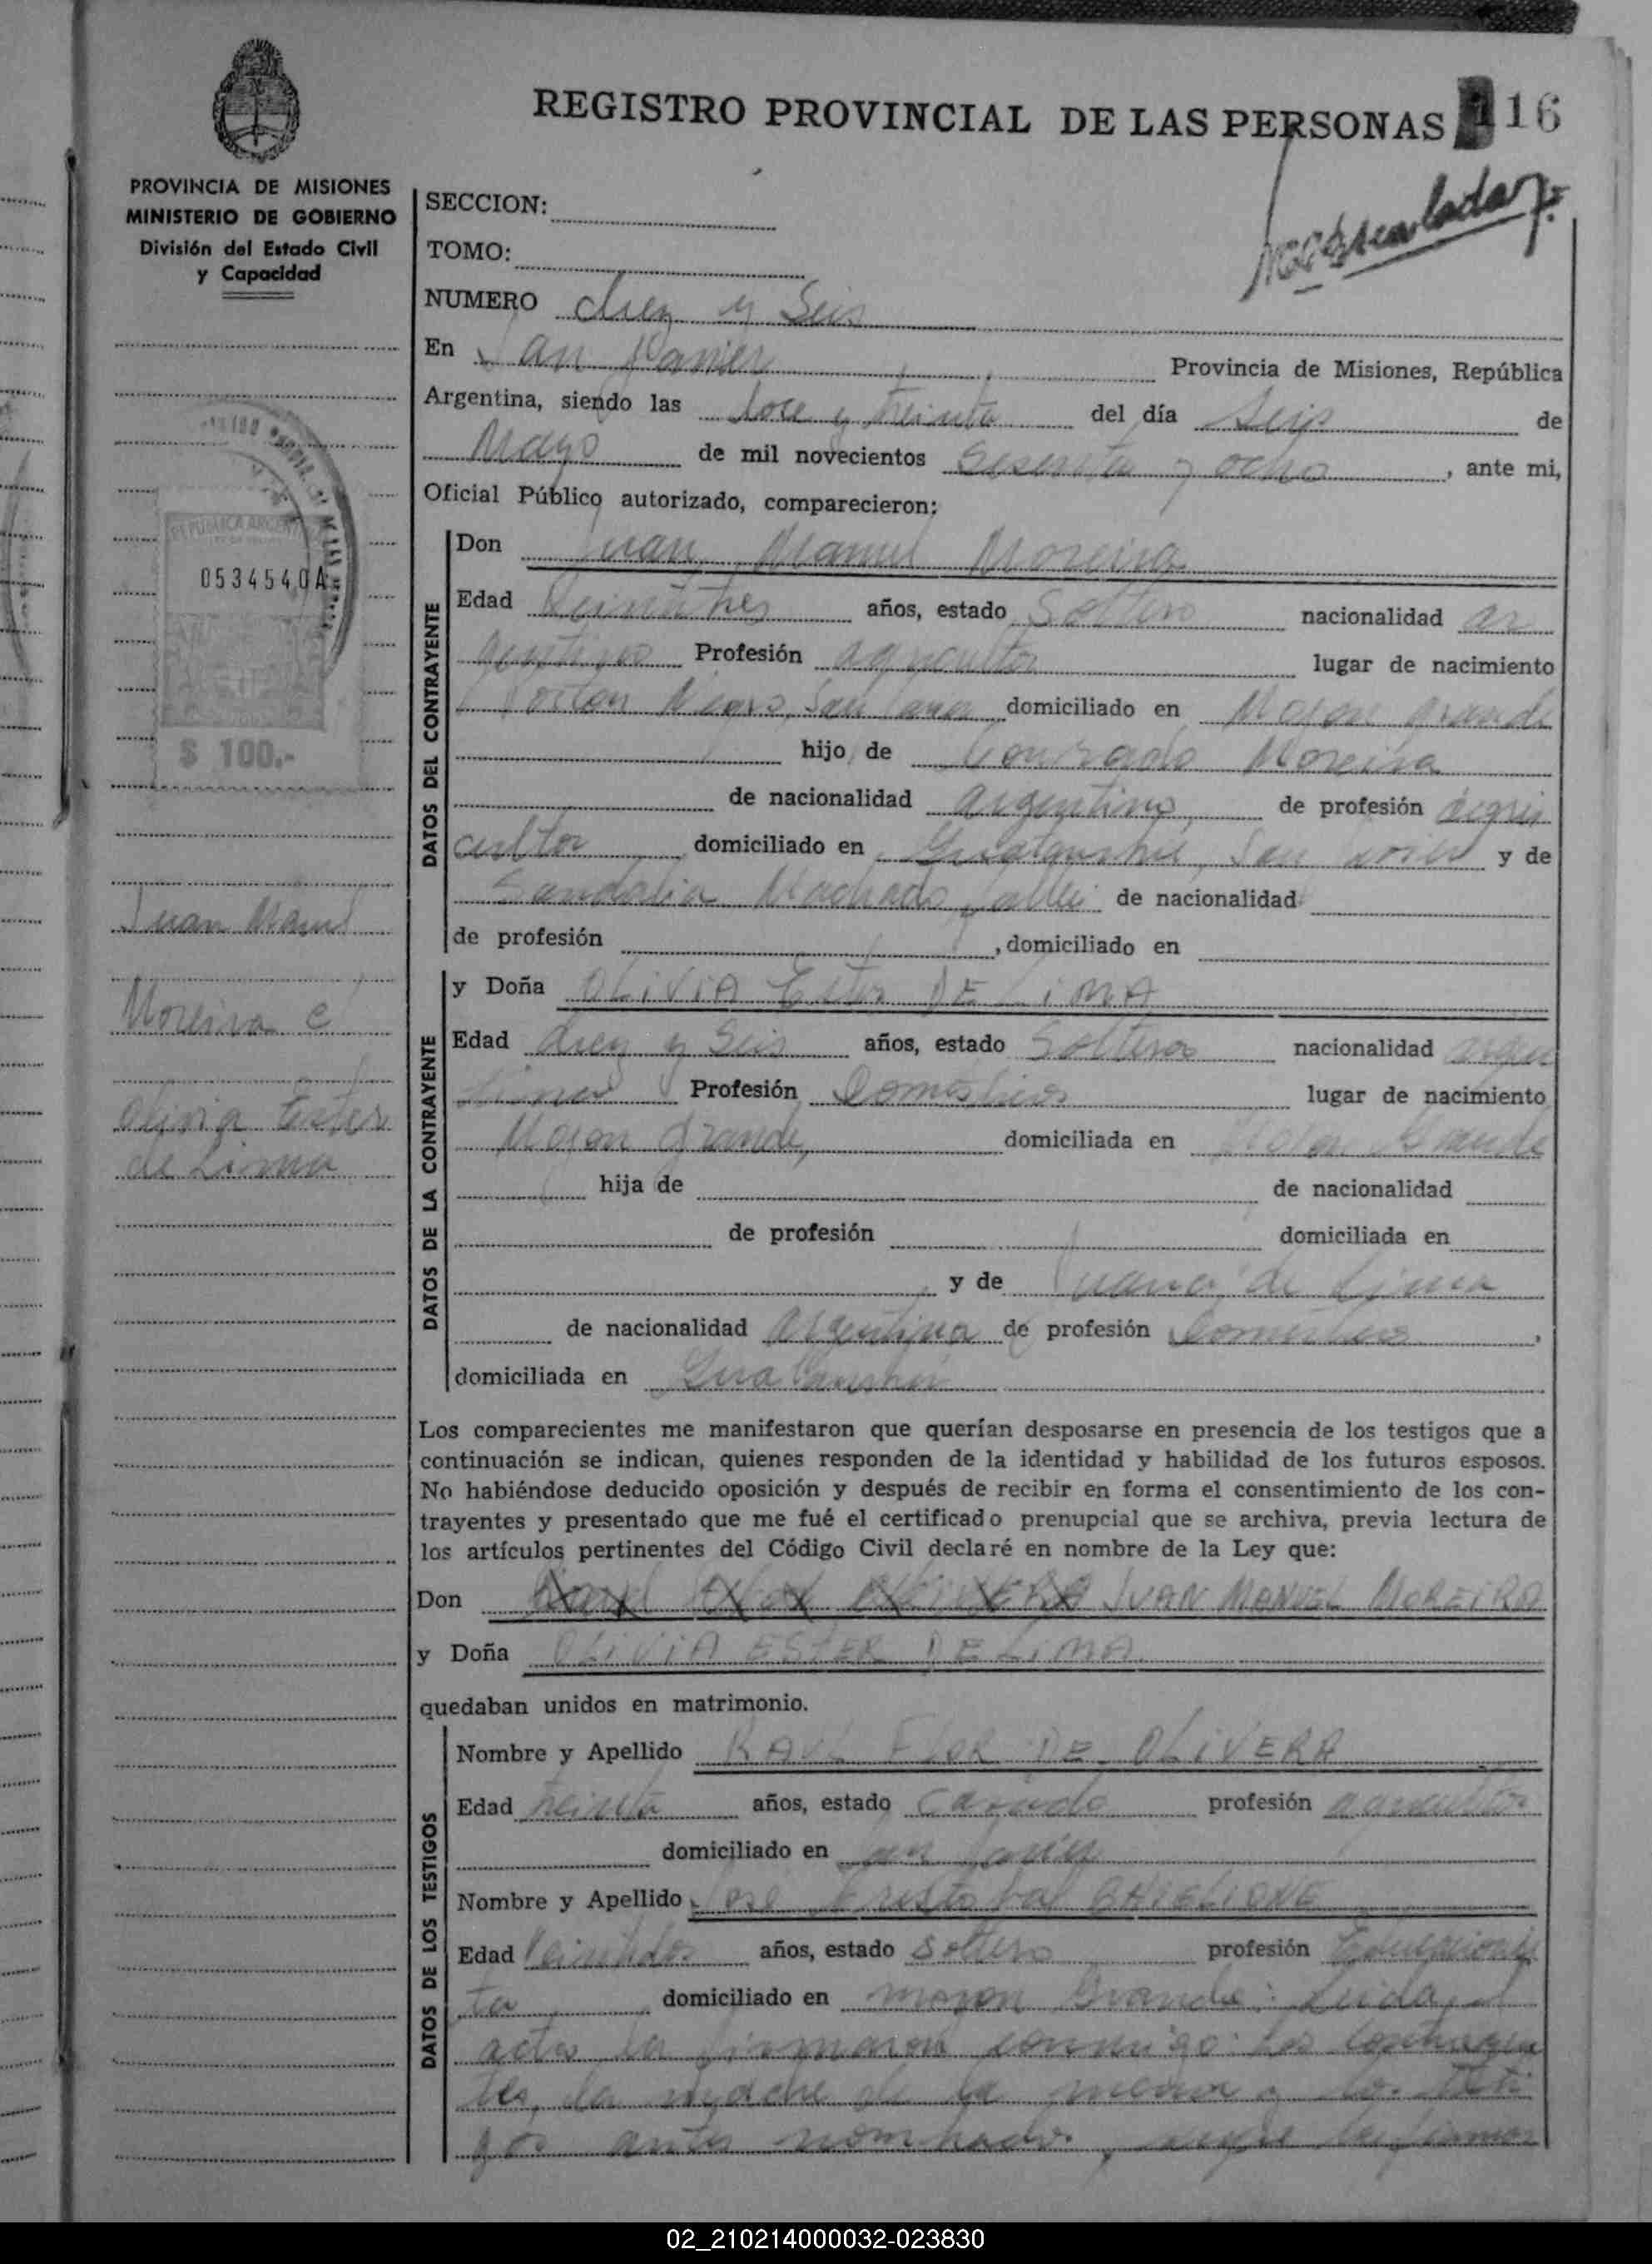 REGISTRO PROVINCIAL DE LAS PERSONAS 16
PROVINCIA DE MISIONES
MINISTERIO DE GOBIERNO
División del Estado Civil
y Capacidad
SECCION:
TOMO:
NUMERO diez y Seis
En San Javier Provincia de Misiones, República
Argentina, siendo las doce y treinta del día Seis de
Mayo de mil novecientos Sesenta y ocho, ante mi,
Oficial Público autorizado, comparecieron:
REPUBLICA ARGENTINA
0534540A
$ 100.-
Juan Manuel
Moreira c/
Olivia Ester
de Lima
DATOS DEL CONTRAYENTE
Don Juan Manuel Moreira
Edad Veintitres años, estado Soltero nacionalidad ar
gentino Profesión agricultor lugar de nacimiento
Porton Negro, San Javier domiciliado en Mojon Grande
hijo de Conrado Moreira
de nacionalidad argentino, de profesión agri
cultor domiciliado en San Javier y de
Sandalia Machado, de nacionalidad
de profesión , domiciliado en
DATOS DE LA CONTRAYENTE
y Doña OLIVIA Ester DE LIMA
Edad diez y Seis años, estado Soltera nacionalidad argen
tina Profesión Domestica lugar de nacimiento
Mojon Grande, domiciliada en Mojon Grande
hija de de nacionalidad
de profesión domiciliada en
y de Juana de Lima
de nacionalidad argentina de profesión Domestica,
domiciliada en
Los comparecientes me manifestaron que querían desposarse en presencia de los testigos que a
continuación se indican, quienes responden de la identidad y habilidad de los futuros esposos.
No habiéndose deducido oposición y después de recibir en forma el consentimiento de los con-
trayentes y presentado que me fué el certificado prenupcial que se archiva, previa lectura de
los artículos pertinentes del Código Civil declaré en nombre de la Ley que:
Don JUAN MANUEL MOREIRA
y Doña OLIVIA ESTER DE LIMA
quedaban unidos en matrimonio.
DATOS DE LOS TESTIGOS
Nombre y Apellido RAUL FLOR DE OLIVERA
Edad treinta años, estado Casado profesión agricultor
domiciliado en San Javier
Nombre y Apellido José Cristobal GHIGLIONE
Edad Veintidos años, estado soltero profesión Educacionis
ta domiciliado en mojon Grande: Leida el
acta la firmaron conmigo los contrayen
tes, la madre de la menor y los testi
gos antes nombrados,
02_210214000032-023830